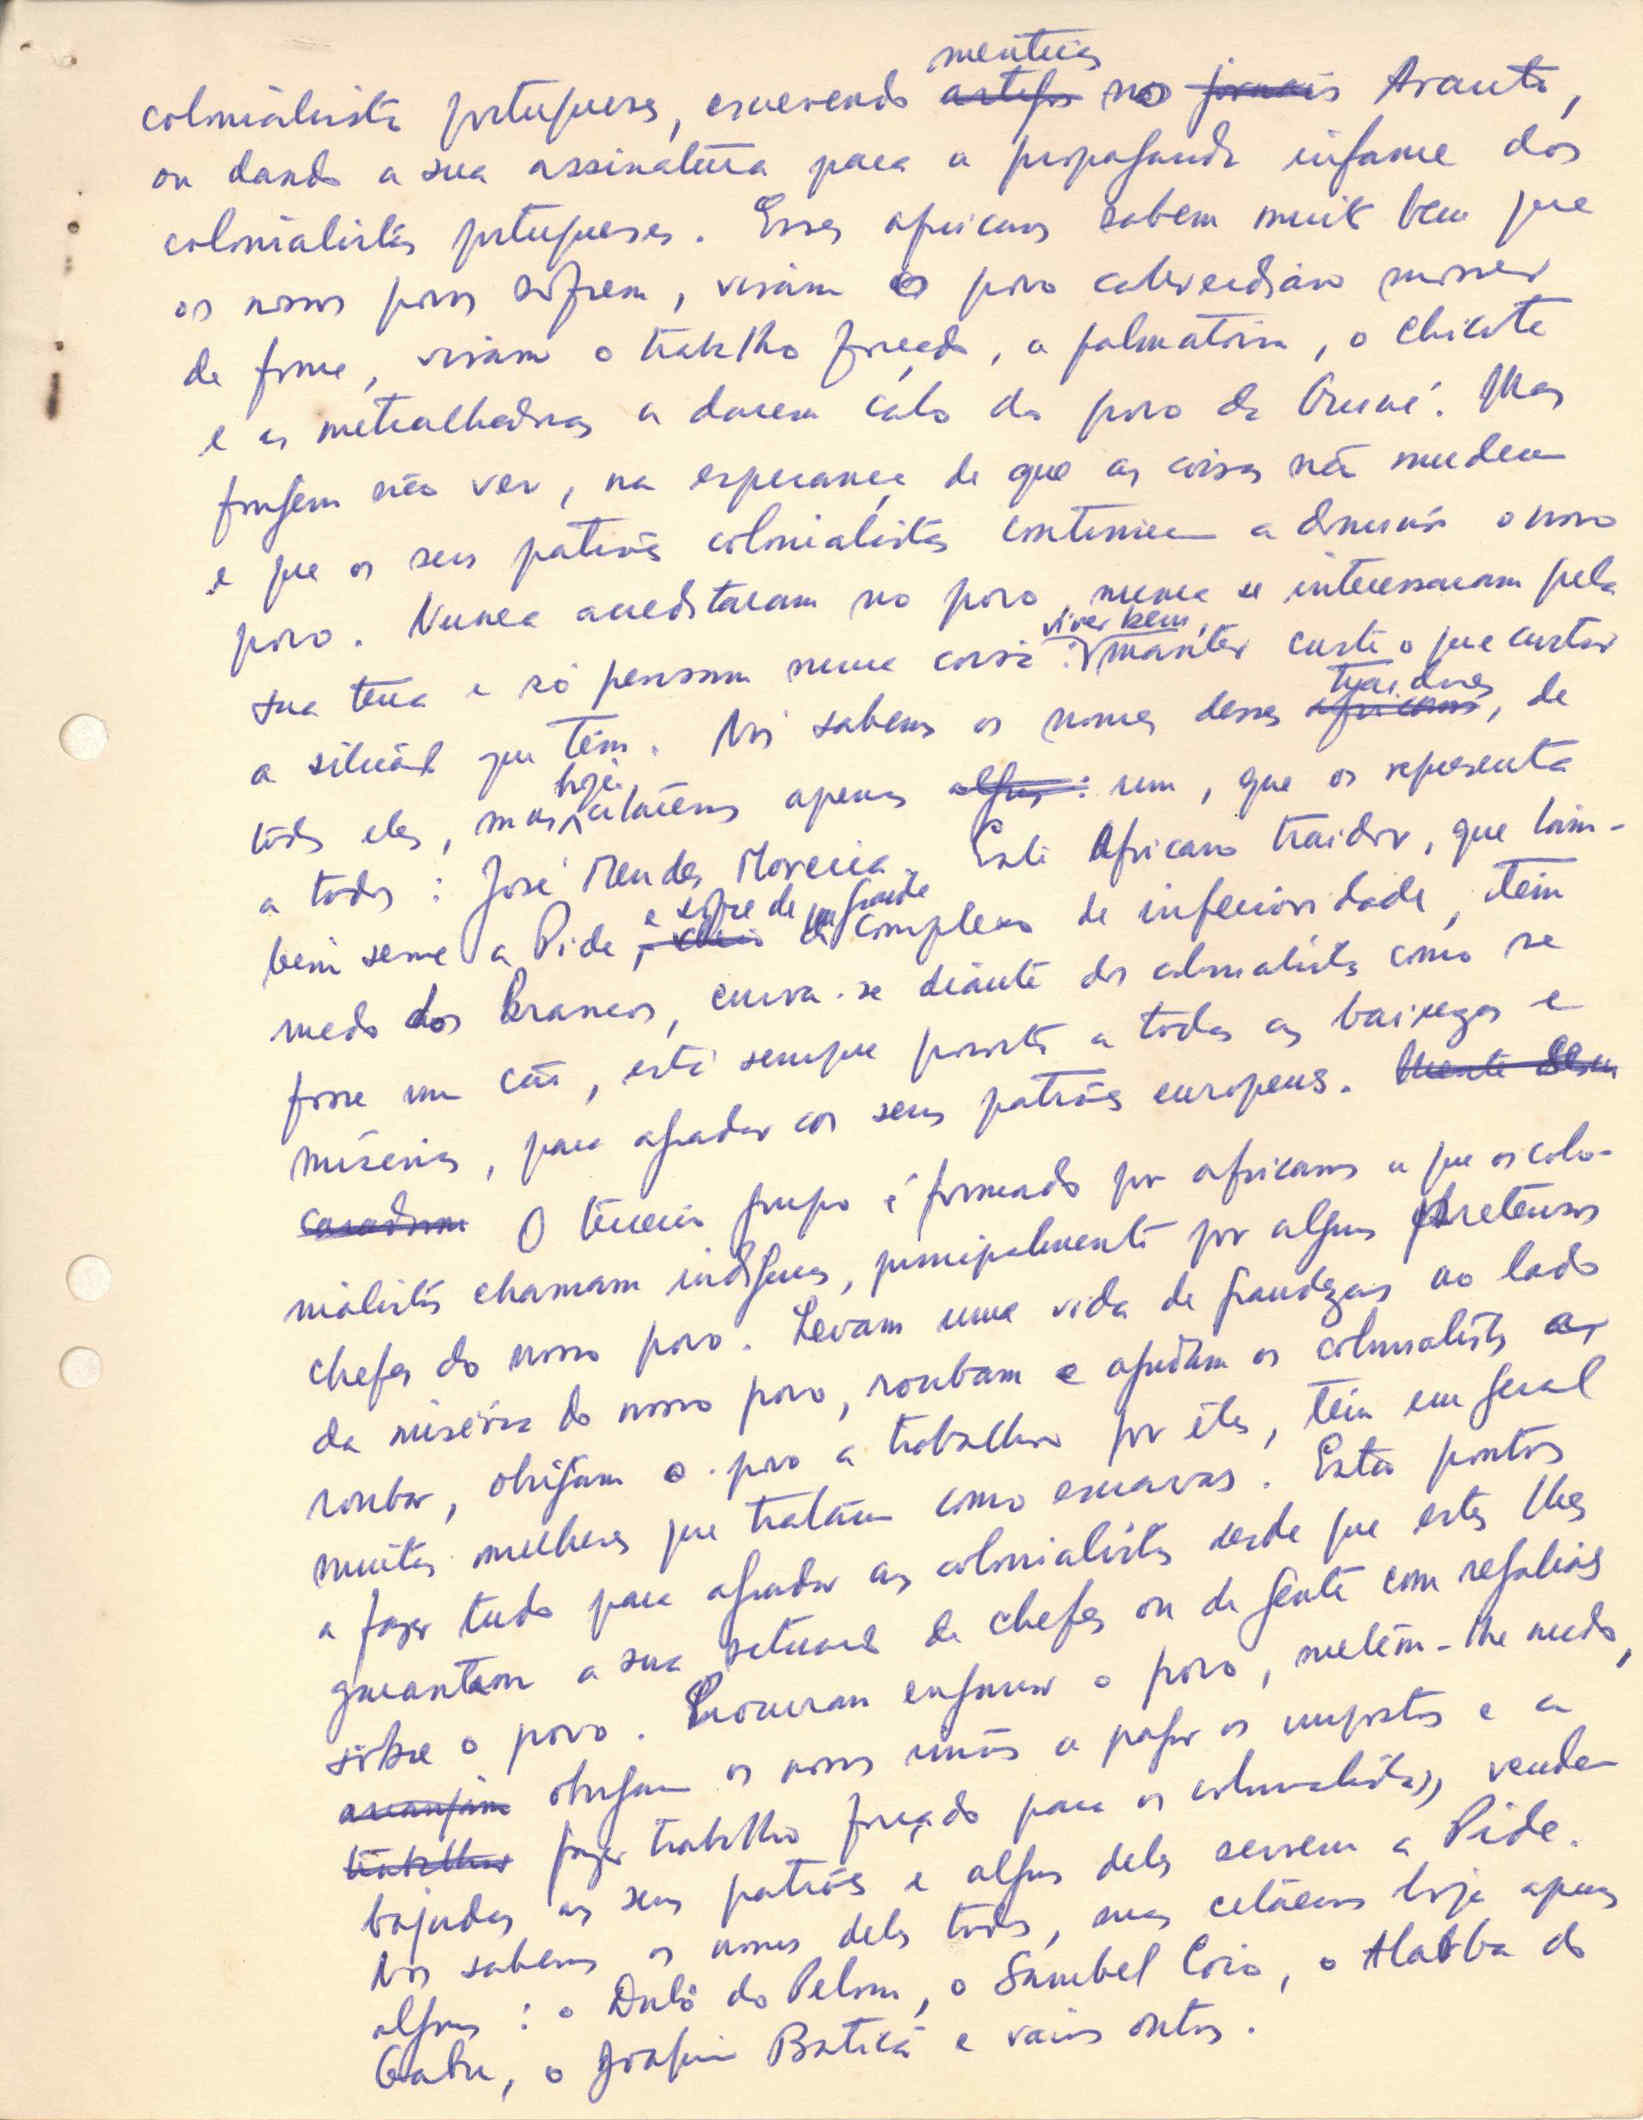 mentiras
colonialista portuguesa, escrevendo artigos no jornais Arauto,
ou dando a sua assinatura para a propaganda infame dos
colonialistas portugueses. Esses africanos sabem muito bem que
os nossos povos sofrem, viram o povo caboverdiano morrer
de fome, viram o trabalho forçado, a palmatória, o chicote
e as metralhadoras a darem cabo do povo da Guiné. Mas
fingem não ver, na esperança de que as coisas não mudem
e que os seus patrões colonialistas continuem a dominar o nosso
povo. Nunca acreditaram no povo, nunca se interessaram pela
viver bem,
sua terra e só pensam numa coisa: manter custe o que custar
traidores
a situação que têm. Nós sabemos os nomes desses africanos, de
hoje
todos eles, mas citaremos apenas alguns: um, que os representa
a todos: José Mendes Moreira. Este Africano traidor, que tam-
e sofre de um grande
bém serve a Pide, cheio de complexo de inferioridade, tem
medo dos Brancos, curva-se diante dos colonialistas como se
fosse um cão, está sempre pronto a todas as baixezas e
misérias, para agradar aos seus patrões europeus.
O terceiro grupo é formado por africanos a que os colo-
nialistas chamam indígenas, principalmente por alguns pretensos
chefes do nosso povo. Levam uma vida de grandezas ao lado
da miséria do nosso povo, roubam e ajudam os colonialistas a
roubar, obrigam o povo a trabalhar por eles, têm em geral
muitas mulheres que tratam como escravas. Estão prontos
a fazer tudo para agradar aos colonialistas desde que estes lhes
garantam a sua situação de chefes ou de gente com regalias
sôbre o povo. Procuram enganar o povo, metem-lhe medo,
arranjam obrigam os nossos irmãos a pagar os impostos e a
trabalhar fazer trabalho forçado para os colonialistas, vendem
bajudas aos seus patrões e alguns deles servem a Pide.
Nós sabemos os nomes deles todos, mas citaremos hoje apenas
alguns: o Duló do Pelom, o Sambel Coio, o Alabba do
Gabu, o Joaquim Baticã e vários outros.